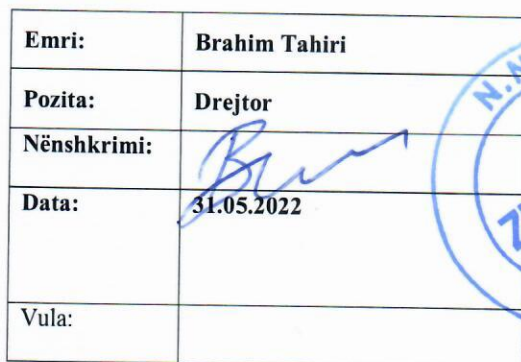 Emri: Brahim Tahiri
Pozita: Drejtor
Nënshkrimi:
Data: 31.05.2022
Vula:
N.N